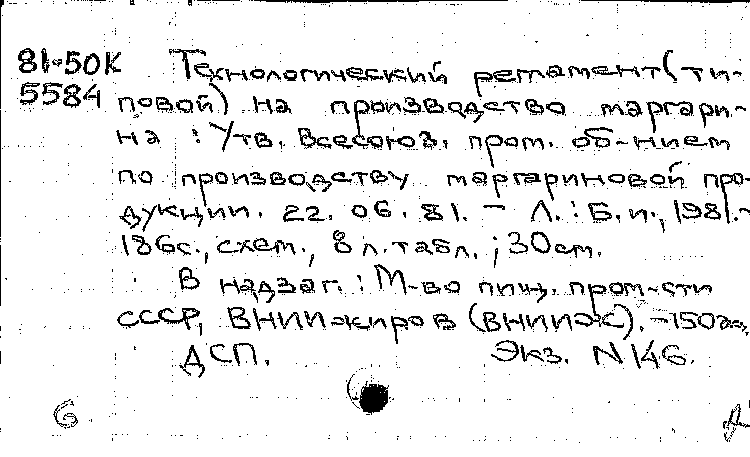 81-50К Технологический регламент (ти-
5584 повой) на производство маргари-
на : Утв. Всесоюз. пром. об-нием
по производству маргариновой про-
дукции. 22. 06. 81. – Л. : Б. и., 1981. –
186с., схем., 8 л. табл. ; 30 см.
В надзаг. : М-во пищ. пром-сти
СССР, ВНИИжиров (ВНИИЖ). – 150экз.
ДСП. Экз. N 146.
6